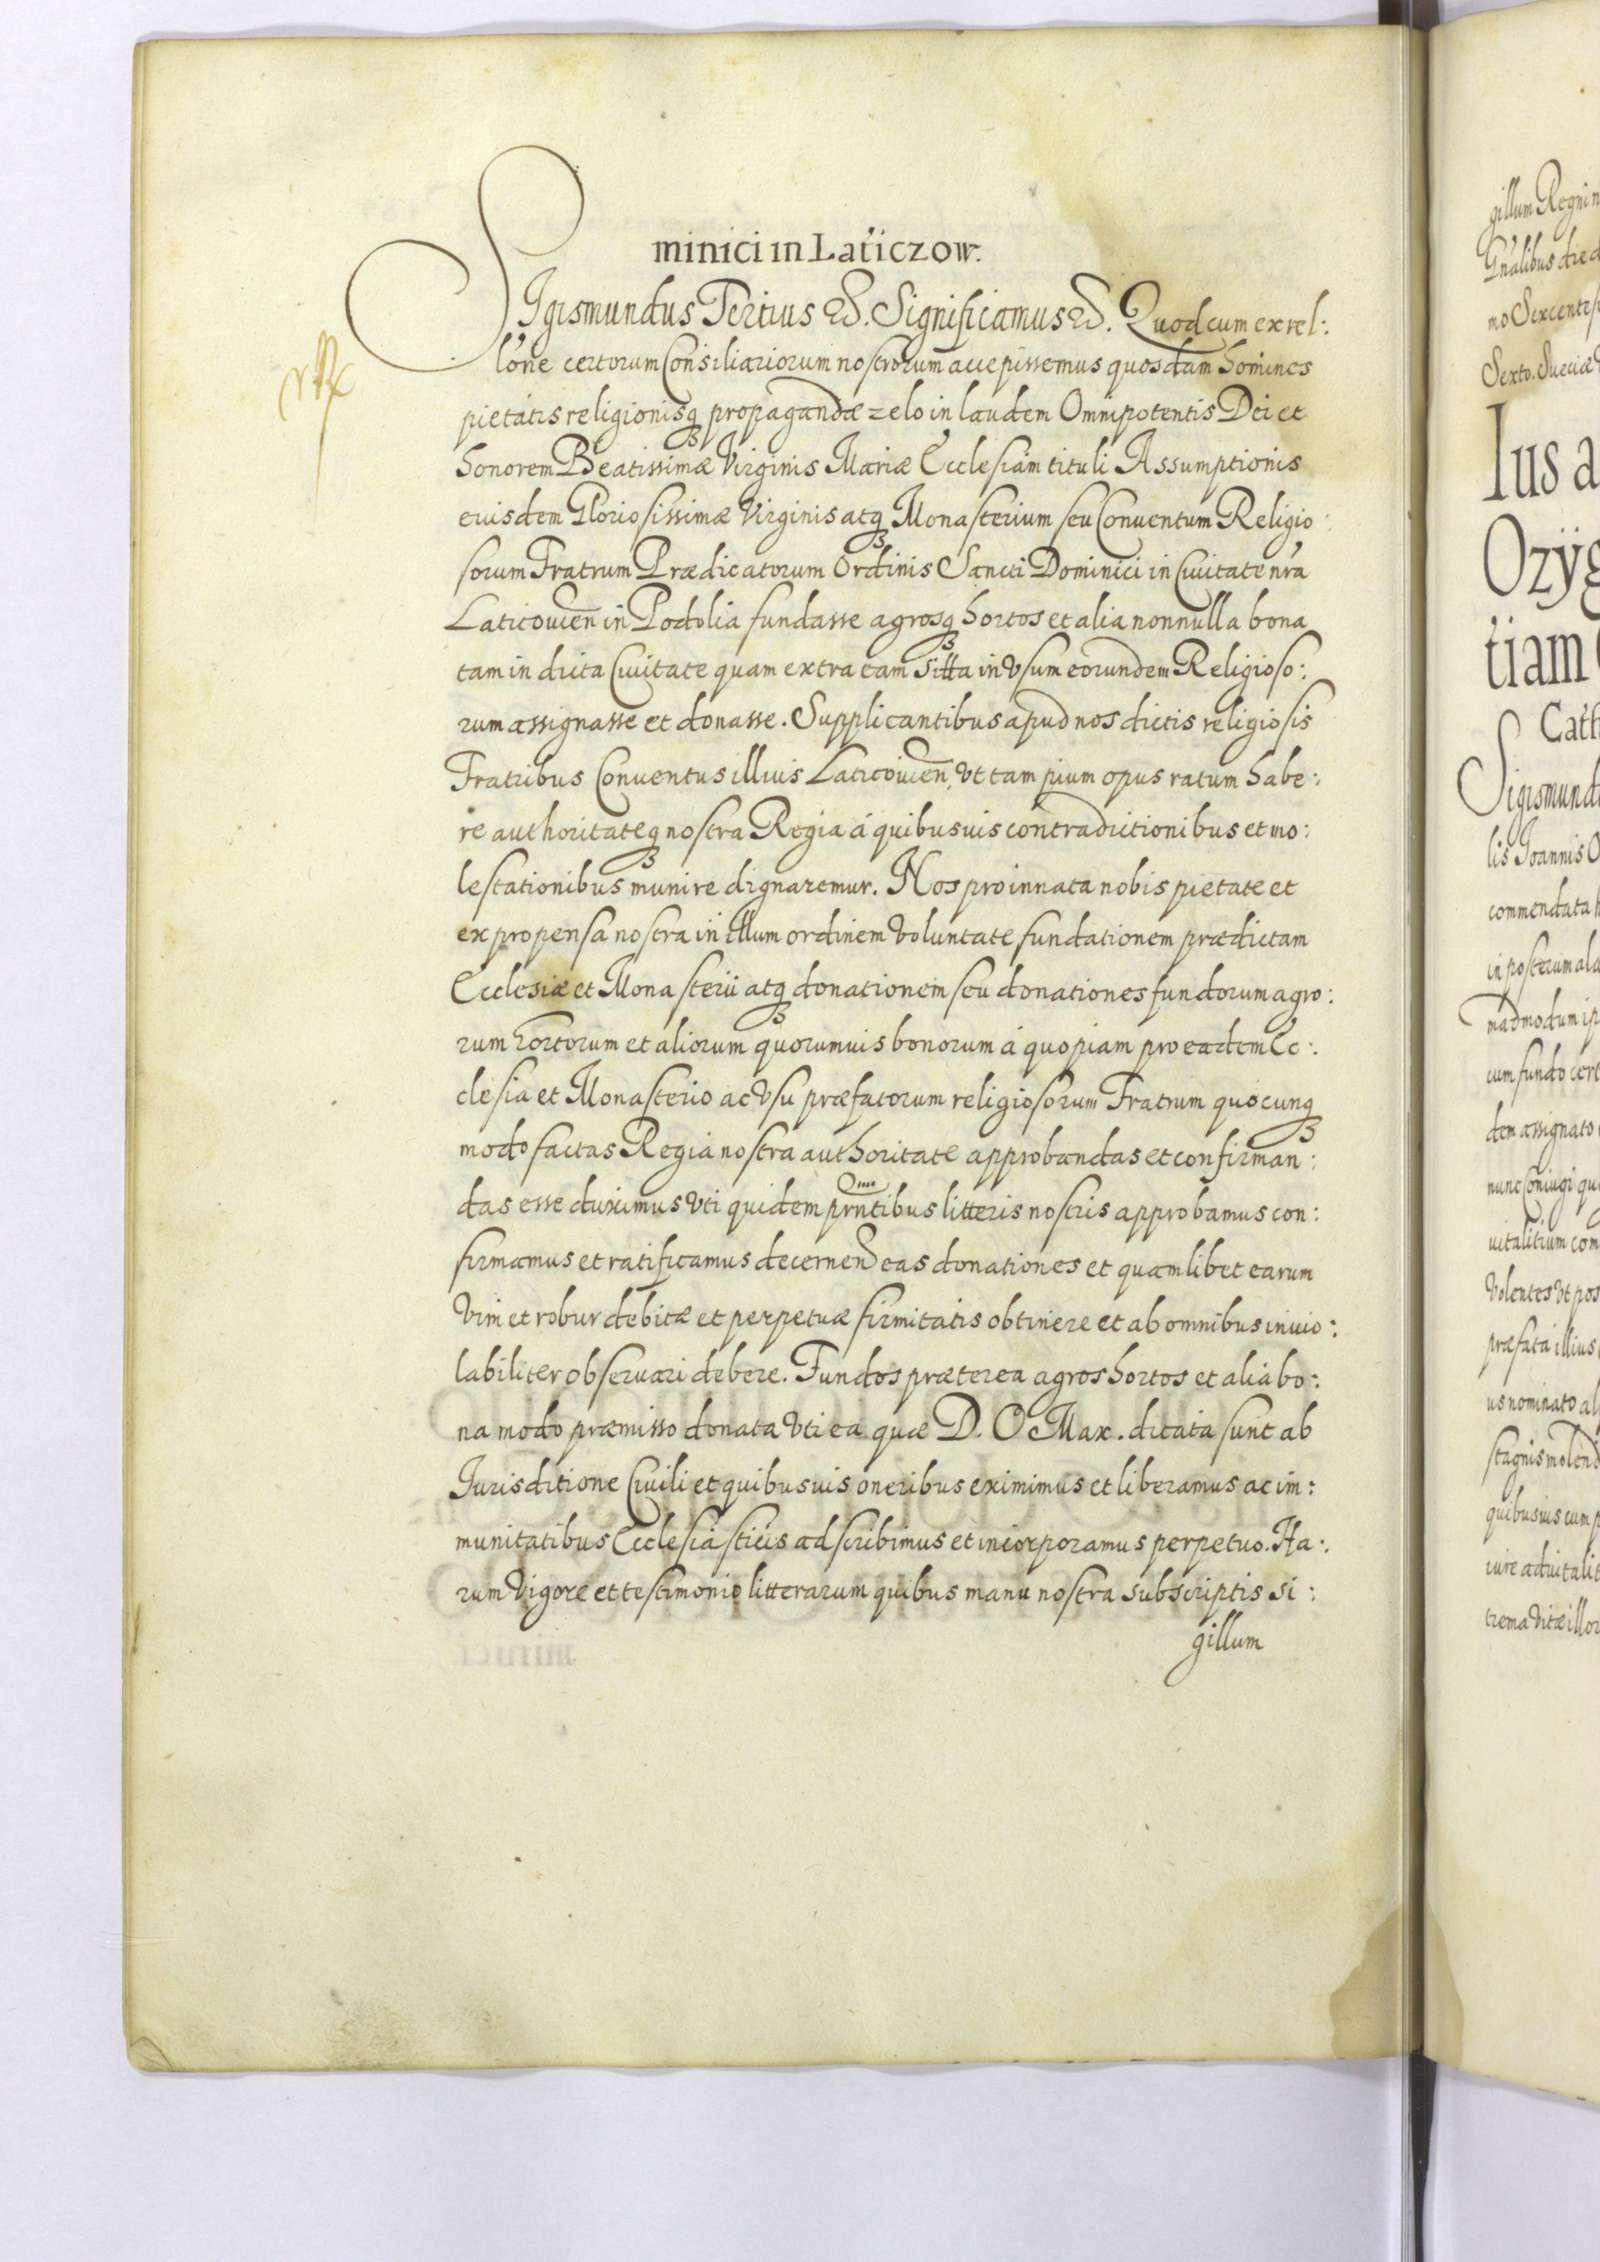 minici in Laticzow.
SIgismundus Tertius &. Significamus &. Quod cum ex rel:
lone certorum Consiliariorum nostrorum accepissemus quosdam homines
pietatis religionisq propagandæ zelo in laudem Omnipotentis Dei et
honorem Beatissimæ Virginis Mariæ Ecclesiam tituli Assumptionis
euisdem Gloriosissimæ Virginis atq Monasterium seu Conuentum Religio:
sorum Fratrum Prædicatorum Ordinis Sancti Dominici in Ciuitate nra
Laticouien in Podolia fundasse agrosq hortos et alia nonnulla bona
tam in dicta Ciuitate quam extra eam sitta in Vsum eorundem Religioso:
rum assignasse et donasse. Supplicantibus apud nos dictis religiosis
Fratribus Conuentus illius Laticouien, Vt tam pium opus ratum habe:
re authoritateq nostra Regia á quibusuis contradictionibus et mo:
lestationibus munire dignaremur. Nos pro innata nobis pietate et
ex propensa nostra in illum ordinem Voluntate fundationem prædictam
Ecclesiæ et Monasterii atq donationem seu donationes fundorum agro:
rum hortorum et aliorum quorumuis bonorum á quopiam pro eadem Ec:
clesia et Monasterio ac Vsu præfatorum religiosorum Fratrum quocunq
modo factas Regia nostra authoritate approbandas et confirman:
das esse duximus Vti quidem prntibus litteris nostris approbamus con:
firmamus et ratificamus decernend eas donationes et quamlibet earum
Vim et robur debitæ et perpetuæ firmitatis obtinere et ab omnibus inuio:
labiliter obseruari debere. Fundos præterea agros hortos et alia bo:
na modo præmisso donata Vti ea quæ D. O Max. dicata sunt ab
Iurisditione Ciuili et quibusuis oneribus eximimus et liberamus ac im:
munitatibus Ecclesiasticis adscribimus et incorporamus perpetuo. Ha:
rum Vigore et testimonio litterarum quibus manu nostra subscriptis si:
gillum
gillum Regni
Gnalibus die
mo Sexcentes
Sexto. Sueciæ
Ius a
Ozÿg
tiam
Cath
Sigismund
lis Joannis O
commendata
in posterum ala
madmodum ip
cum fundo cert
dem assignato
nunc Coniugi qu
uitalitium com
Volentes Vt pos
præfata illius
us nominato al
stagnis molend
quibusuis cum p
iure aduitalit
trema Vitæ illor